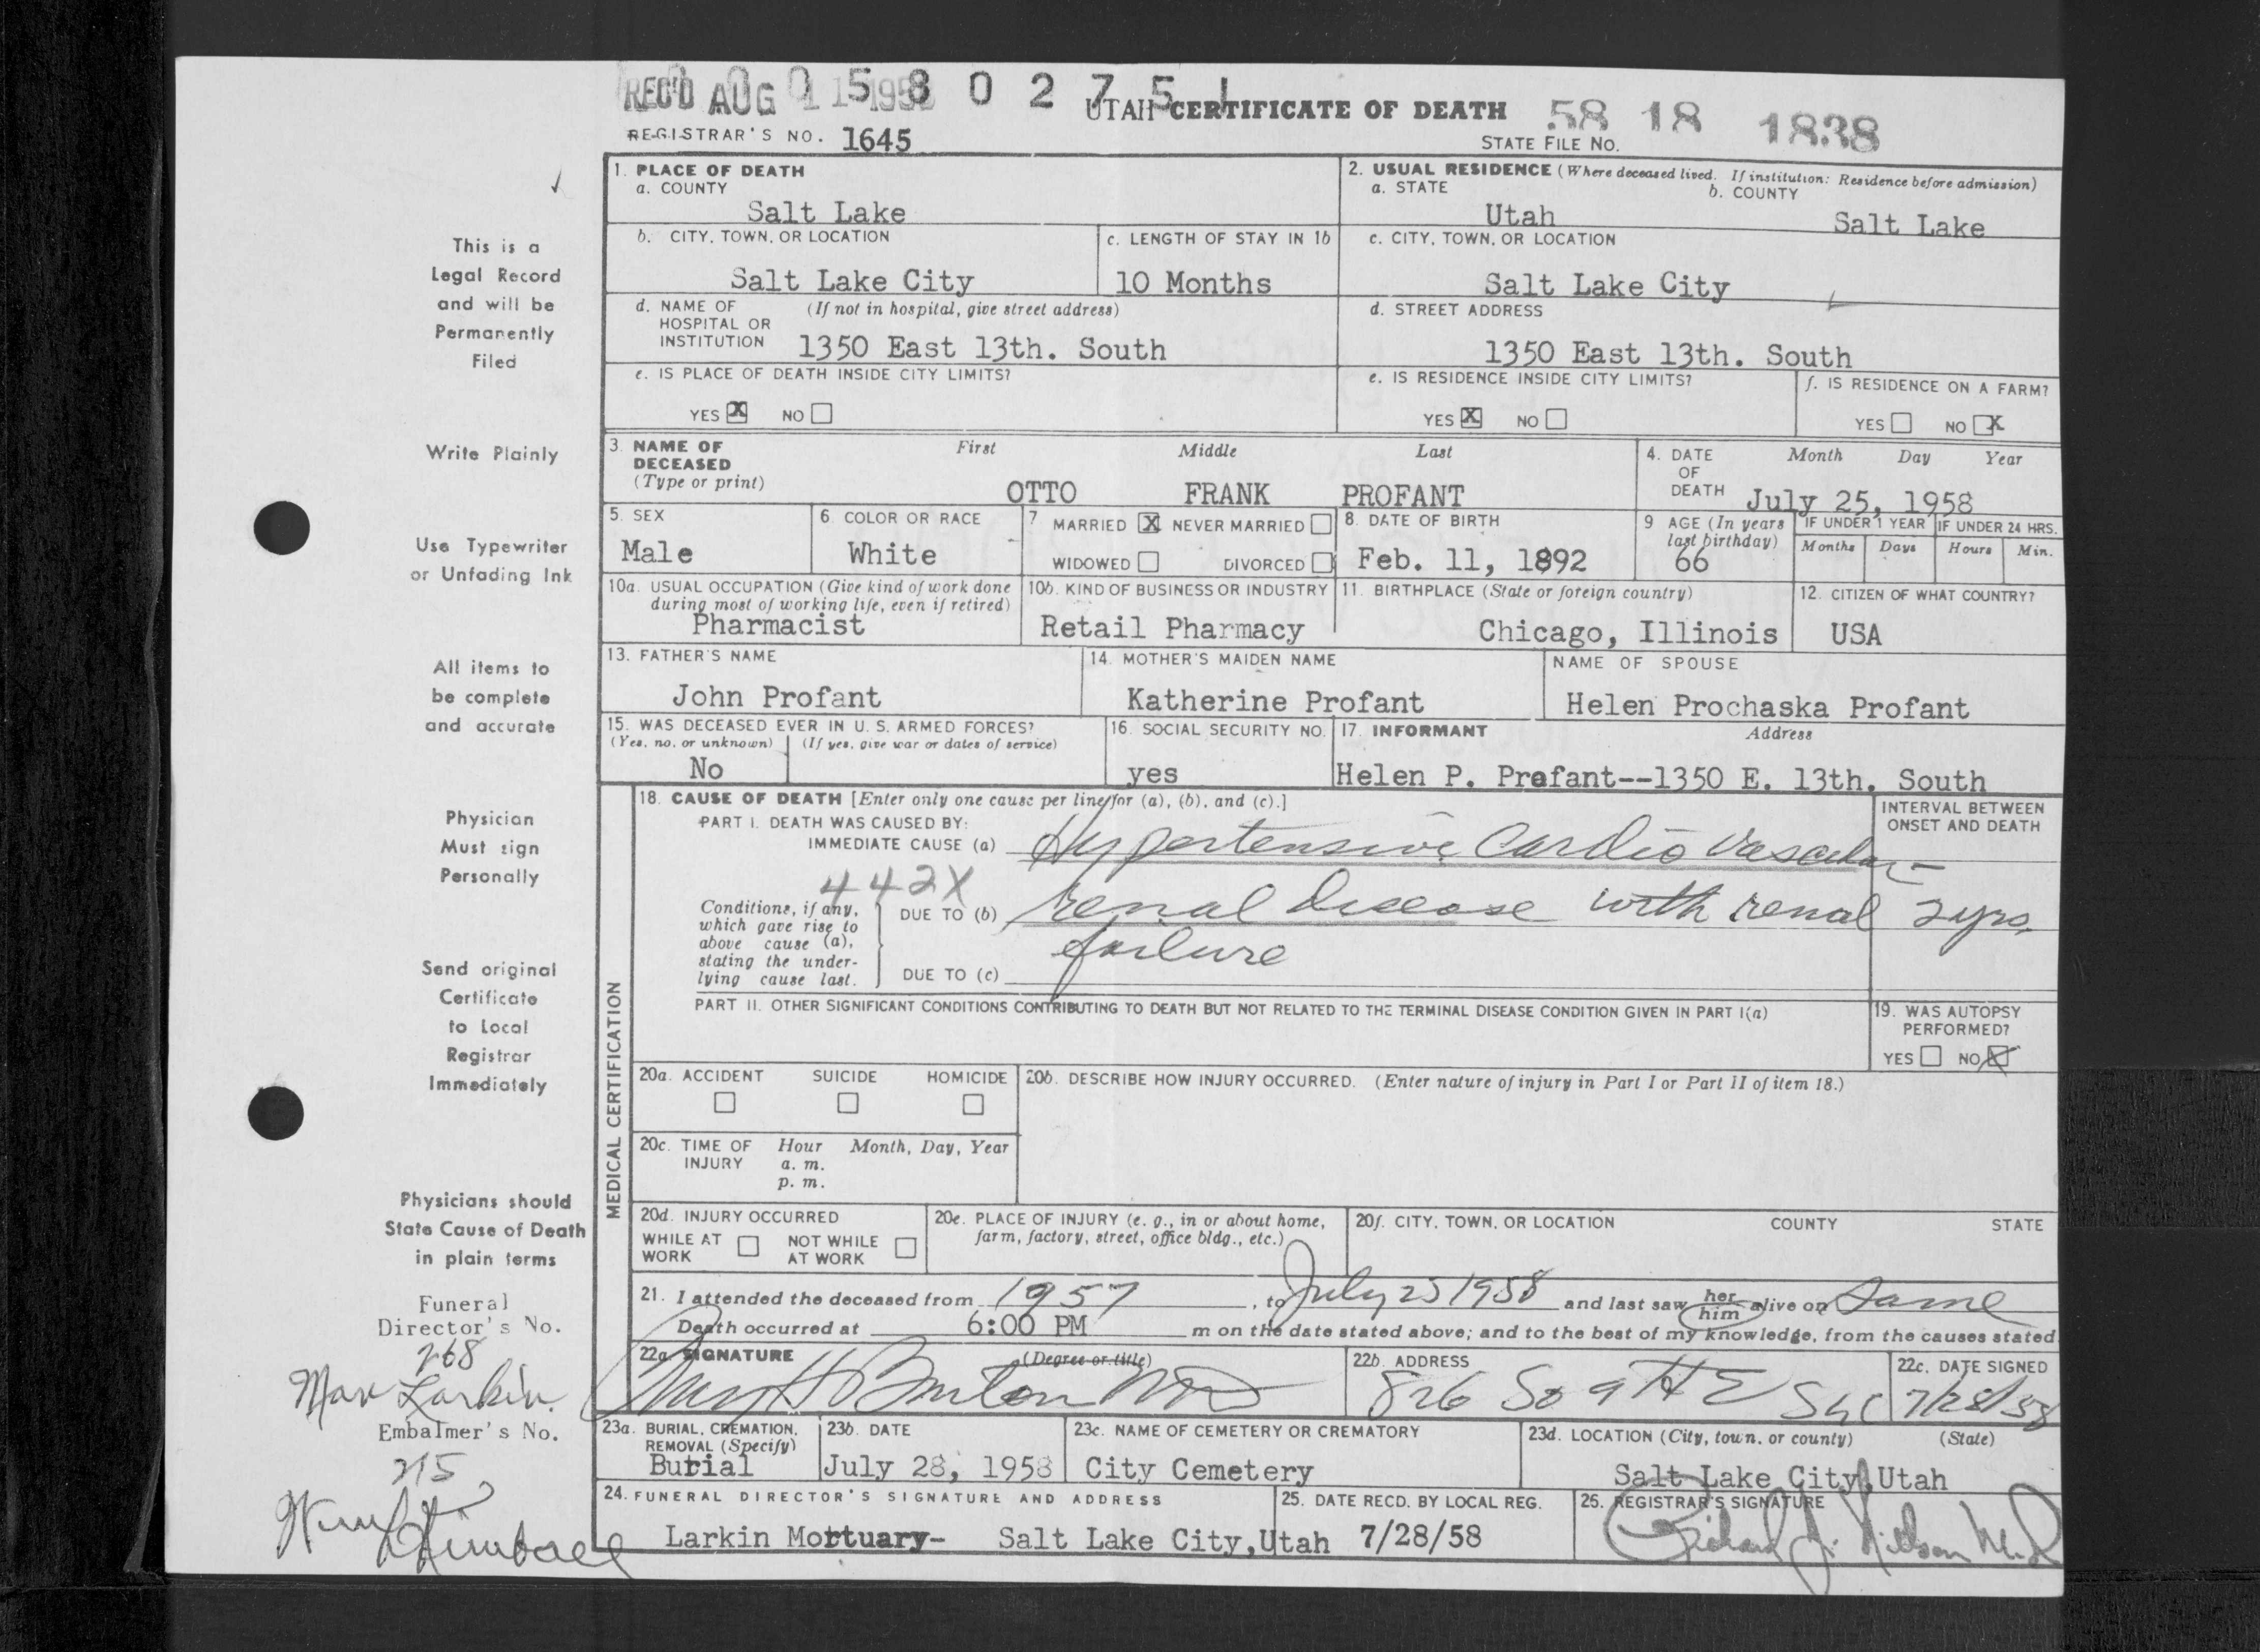 REC'D AUG 11 1958 0 2 7 5 1
UTAH CERTIFICATE OF DEATH 58 18 1838
REGISTRAR'S NO. 1645
STATE FILE NO.
1. PLACE OF DEATH
a. COUNTY
Salt Lake
2. USUAL RESIDENCE (Where deceased lived. If institution: Residence before admission)
a. STATE
Utah
b. COUNTY
Salt Lake
b. CITY, TOWN, OR LOCATION
Salt Lake City
c. LENGTH OF STAY IN 1b
10 Months
c. CITY, TOWN, OR LOCATION
Salt Lake City
d. NAME OF HOSPITAL OR INSTITUTION (If not in hospital, give street address)
1350 East 13th. South
d. STREET ADDRESS
1350 East 13th. South
e. IS PLACE OF DEATH INSIDE CITY LIMITS?
YES X NO
e. IS RESIDENCE INSIDE CITY LIMITS?
YES X NO
f. IS RESIDENCE ON A FARM?
YES NO X
3. NAME OF DECEASED (Type or print)
First Middle Last
OTTO FRANK PROFANT
4. DATE OF DEATH Month Day Year
July 25, 1958
5. SEX
Male
6. COLOR OR RACE
White
7 MARRIED X NEVER MARRIED
WIDOWED DIVORCED
8. DATE OF BIRTH
Feb. 11, 1892
9 AGE (In years last birthday)
66
IF UNDER 1 YEAR IF UNDER 24 HRS.
Months Days Hours Min.
10a. USUAL OCCUPATION (Give kind of work done during most of working life, even if retired)
Pharmacist
10b. KIND OF BUSINESS OR INDUSTRY
Retail Pharmacy
11. BIRTHPLACE (State or foreign country)
Chicago, Illinois
12. CITIZEN OF WHAT COUNTRY?
USA
13. FATHER'S NAME
John Profant
14. MOTHER'S MAIDEN NAME
Katherine Profant
NAME OF SPOUSE
Helen Prochaska Profant
15. WAS DECEASED EVER IN U. S. ARMED FORCES?
(Yes, no. or unknown) (If yes, give war or dates of service)
No
16. SOCIAL SECURITY NO.
yes
17. INFORMANT Address
Helen P. Profant--1350 E. 13th. South
MEDICAL CERTIFICATION
18. CAUSE OF DEATH [Enter only one cause per line for (a), (b), and (c).]
PART I. DEATH WAS CAUSED BY:
IMMEDIATE CAUSE (a) Hypertensive Cardio Vascular
442X
Conditions, if any, which gave rise to above cause (a), stating the underlying cause last.
DUE TO (b) renal disease with renal
failure
DUE TO (c)
INTERVAL BETWEEN ONSET AND DEATH
2 yrs.
PART II. OTHER SIGNIFICANT CONDITIONS CONTRIBUTING TO DEATH BUT NOT RELATED TO THE TERMINAL DISEASE CONDITION GIVEN IN PART I(a)
19. WAS AUTOPSY PERFORMED?
YES NO X
20a. ACCIDENT SUICIDE HOMICIDE
20b. DESCRIBE HOW INJURY OCCURRED. (Enter nature of injury in Part I or Part II of item 18.)
20c. TIME OF INJURY Hour Month, Day, Year
a. m.
p. m.
20d. INJURY OCCURRED
WHILE AT WORK NOT WHILE AT WORK
20e. PLACE OF INJURY (e. g., in or about home, farm, factory, street, office bldg., etc.)
20f. CITY, TOWN, OR LOCATION COUNTY STATE
21. I attended the deceased from 1957, to July 25 1958 and last saw her him alive on Same
Death occurred at 6:00 PM m on the date stated above; and to the best of my knowledge, from the causes stated
22a SIGNATURE (Degree or title)
Burton MD
22b. ADDRESS
826 So 9th E SLC
22c. DATE SIGNED
7/28/58
23a. BURIAL, CREMATION, REMOVAL (Specify)
Burial
23b. DATE
July 28, 1958
23c. NAME OF CEMETERY OR CREMATORY
City Cemetery
23d. LOCATION (City, town, or county) (State)
Salt Lake City, Utah
24. FUNERAL DIRECTOR'S SIGNATURE AND ADDRESS
Larkin Mortuary- Salt Lake City, Utah
25. DATE RECD. BY LOCAL REG.
7/28/58
26. REGISTRAR'S SIGNATURE
Richard J. Nilson M.D
This is a
Legal Record
and will be
Permanently
Filed
Write Plainly
Use Typewriter
or Unfading Ink
All items to
be complete
and accurate
Physician
Must sign
Personally
Send original
Certificate
to Local
Registrar
Immediately
Physicians should
State Cause of Death
in plain terms
Funeral
Director's No.
268
Max Larkin
Embalmer's No.
215
Kimball